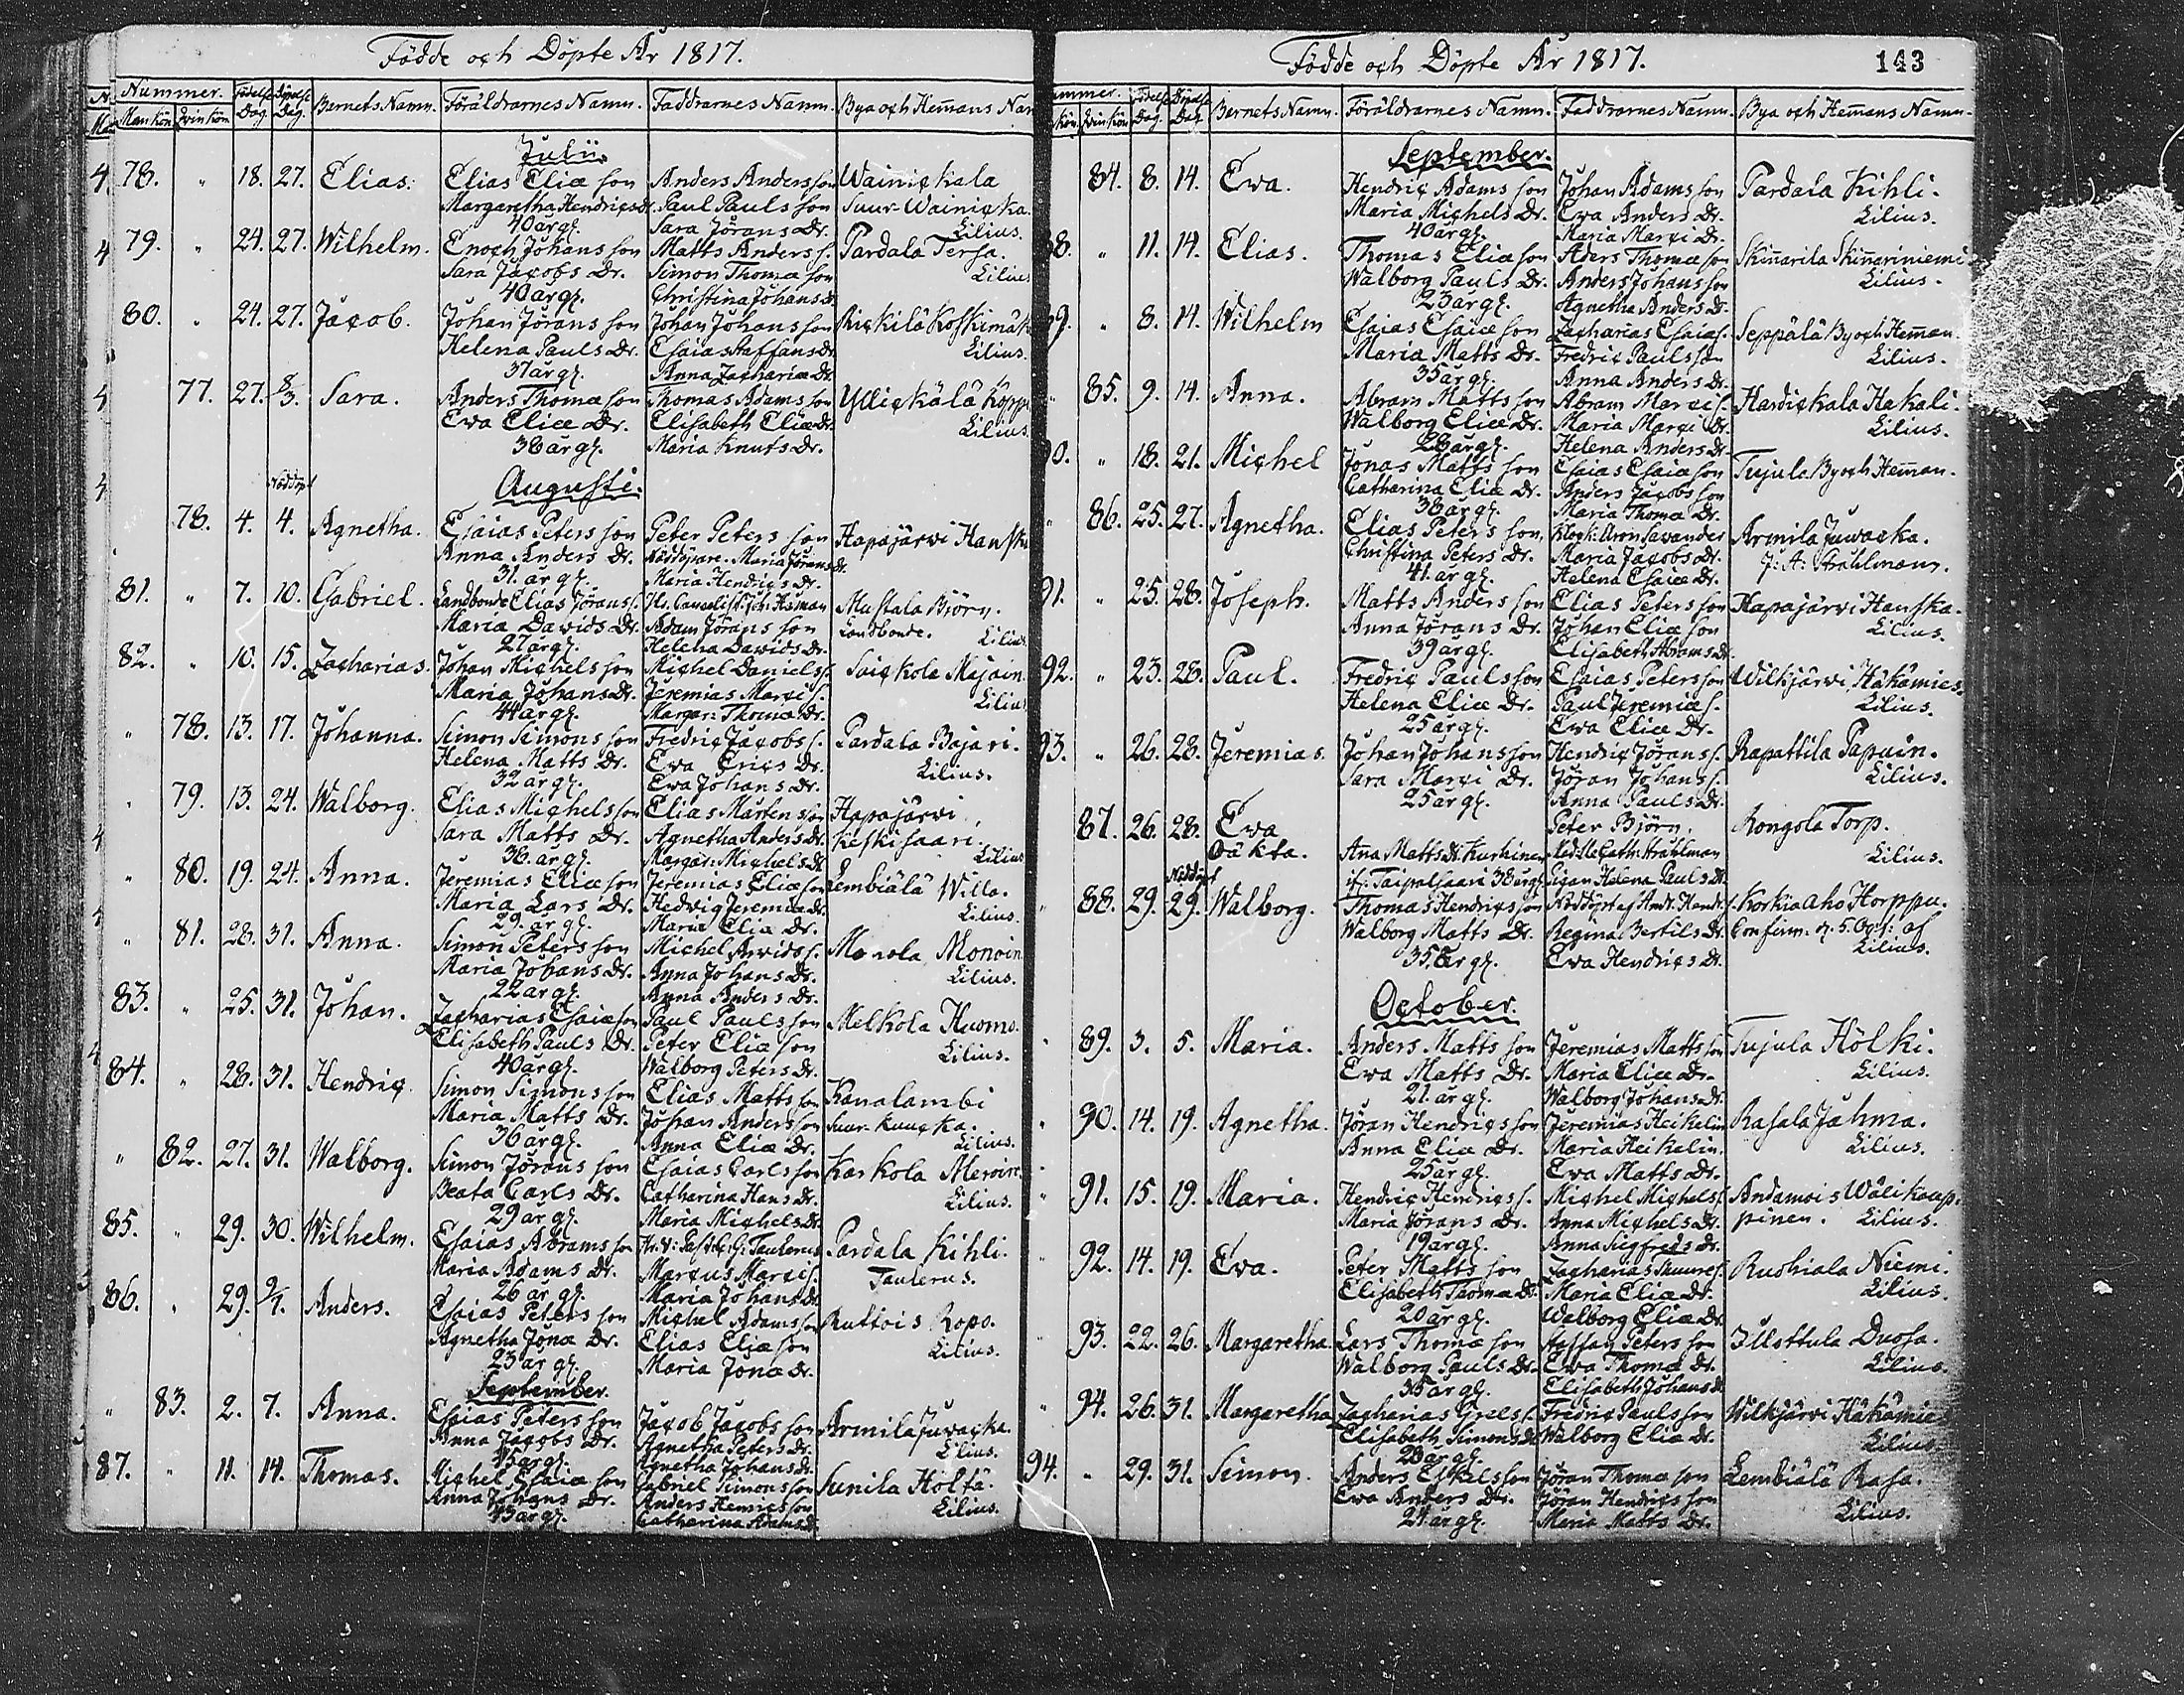 Födde och Döpte År 1817.
Nummer. Födelse Döpelse
Mankön Qvinkön Dag. Dag. Barnets Namn. Föräldrarnes Namn. Faddrarnes Namn. Bya och Hemans Nam
Julii.
78. " 18. 27. Elias. Elias Eliæ son Anders Andersson Wainickala
Margaretha Hendrics Dr. Paul Pauls son Suur-Wainicka.
40 år gl. Sara Jörans Dr. Lilius.
79. " 24. 27. Wilhelm. Enoch Johans son Matts Anders s. Pardala Tersa.
Sara Jacobs Dr. Simon Thomæ son Lilius
40 år gl. Christina Johans d.
80. " 24. 27. Jacob. Johan Jörans son Johan Johans son Rickilä Koskimäk
Helena Pauls Dr. Esaias Staffans Lilius.
37 år gl. Anna Zachariæ Dr.
77. 27. 8/3. Sara. Anders Thomæ son Thomas Adams son Ylljckälä Kopp
Ewa Eliæ Dr. Elisabeth Eliæ Dr. Lilius.
38 år gl. Maria Knuts Dr.
Augusti.
Nöddöpt
78. 4. 4. Agnetha. Esaias Peters son Peter Peters son Hapajärwi Hanska
Anna Anders Dr. Nöddöpare. Maria Jörans Dr.
31. år gl. Maria Hendrics Dr.
81. " 7. 10. Gabriel. Landbonde Elias Jörans s. Mustala Björn.
Maria Davids Dr. Adam Jörans son Landbonde. Lilius
27 år gl. Helena Dawids Dr.
82. " 10. 15. Zacharias. Johan Michels son Michel Daniels s. Saickola Majain
Maria Johans Dr. Jeremias Marci s. Lilius
44 år gl. Margar: Thomæ Dr.
" 78. 13. 17. Johanna. Simon Simons son Fredric Jacobs s. Pardala Bajari.
Helena Matts Dr. Ewa Erics Dr. Lilius.
32 år gl. Ewa Johans Dr.
79. 13. 24. Walborg. Elias Michels son Elias Mårtens son Hapajärwi
Sara Matts Dr. Agnetha Anders Dr. Keskisaari.
38. år gl. Margar: Michels Dr. Lilius
" 80. 19. 24. Anna. Jeremias Eliæ son Jeremias Eliæ son Lembiälä Willa.
Maria Lars Dr. Hedvig Jeremiæ Dr. Lilius.
29. år gl. Maria Eliæ Dr.
" 81. 28. 31. Anna. Simon Peters son Michel Arvids s. Monola Monoin
Maria Johans Dr. Anna Johans Dr. Lilius.
22 år gl. Anna Anders Dr.
83. " 25. 31. Johan. Zacharias Esaiæ son Paul Pauls son Melkola Huomo.
Elisabeth Pauls Dr. Peter Eliæ son Lilius.
40 år gl. Walborg Peters Dr.
84. " 28. 31. Hendric. Simon Simons son Elias Matts son Kanalambi
Maria Matts Dr. Johan Anders son Suur-Kuucka.
36 år gl. Anna Eliæ Dr. Lilius.
" 82. 27. 31. Walborg. Simon Jörans son Esaias Carls son Karkola Meroin.
Beata Carls Dr. Catharina Hans Dr. Lilius.
29 år gl. Maria Michels Dr.
85. " 29. 30. Wilhelm. Esaias Abrams son Hr. V: Past: G: G: Taulerus Pardala Kihli.
Maria Adams Dr. Marcus Marci s. Taulerus.
26 år gl. Maria Johans Dr.
86. " 29. 9/7. Anders. Esaias Peters son Michel Adams son Ruttois Ropo.
Agnetha Jonæ Dr. Elias Eliæ son Lilius.
23 år gl. Maria Jonæ Dr.
September.
" 83. 2. 7. Anna. Esaias Peters son Jacob Jacobs son Armila Juwacka.
Anna Jacobs Dr. Agnetha Peters Dr. Lilius.
45 år gl. Agnetha Johans Dr.
87. " 11. 14. Thomas. Michel Esaiæ son Gabriel Simons son Sunila Holtä.
Anna Johans Dr. Anders Henrics son Lilius.
43 år gl. Catharina Adams Dr.
Födde och Döpte År 1817. 143
ummer. Födelse Döpelse
kön. Qvinkön Dag. Dag. Barnets Namn. Föräldrarnes Namn. Faddrarnes Namn. Bya och Hemans Namn.
September.
84. 8. 14. Ewa. Hendric Adams son Johan Adams son Pardala Kihli.
Maria Michels Dr. Ewa Anders Dr. Lilius.
40 år gl. Maria Marci Dr.
88. " 11. 14. Elias. Thomas Eliæ son Aders Thomæ son Skinarila Skinariniemi
Walborg Pauls Dr. Anders Johans son Lilius.
23 år gl. Agnetha Anders D.
89. " 8. 14. Wilhelm Esaias Esaiæ son Zacharias Esaiæ s. Seppälä By och Heman.
Maria Matts Dr. Fredric Pauls son Lilius.
35 år gl. Anna Anders Dr.
85. 9. 14. Anna. Abram Matts son Abram Marci s. Hardickala Hakali.
Walborg Eliæ Dr. Maria Marci Dr. Lilius.
28 år gl. Helena Anders Dr.
90. " 18. 21. Michel Jonas Matts son Esaias Esaiæ son Tujula By och Heman.
Catharina Eliæ Dr. Anders Jacobs son
38 år gl. Maria Thomæ Dr.
86. 25. 27. Agnetha. Elias Peters son, Klock: Aron Savander Armila Juwacka.
Christina Peters Dr. Maria Jacobs Dr. J: A: Strählman.
41. år gl. Helena Esaiæ Dr.
91. " 25. 28. Joseph. Matts Anders son Elias Peters son Hapajärwi Hanska.
Anna Jörans Dr. Johan Eliæ son Lilius.
39 år gl. Elisabeth Abrams Dr.
92. " 23. 28. Paul. Fredric Pauls son Esaias Peters son Wilkjärwi Häkämies.
Helena Eliæ Dr. Paul Jeremiæ s. Lilius.
25 år gl. Ewa Eliæ Dr.
93. " 26. 28. Jeremias. Johan Johans son Hendric Jörans s. Rapattila Papuin.
Sara Marci Dr. Jöran Johans s. Lilius.
25 år gl. Anna Pauls Dr.
87. 26. 28. Ewa Peter Björn. Rongola Torp.
Oäkta. Ana Matts Dr. Kurkinen Mad:lle Cath: Strählman Lilius.
if: Taipalsaari 38 år gl. Pigan Helena Pauls Dr.
Nöddöpt
88. 29. 29. Walborg. Thomas Hendrics son Nöddöpt af Korkiaaho Horppu.
Walborg Matts Dr. Regina Bertils Dr. Confirm. d. 5. Oct: af
35 år gl. Ewa Hendrics Dr. Lilius.
October.
89. 3. 5. Maria. Anders Matts son Jeremias Matts son Tujula Hölki.
Ewa Matts Dr. Maria Eliæ Dr. Lilius.
21. år gl. Walborg Johans Dr.
90. 14. 19. Agnetha. Jöran Hendrics son Jeremias Heikelin Rasala Jähma.
Anna Eliæ Dr. Maria Heikelin. Lilius.
25 år gl. Ewa Matts Dr.
91. 15. 19. Maria. Hendric Hendrics s. Michel Michels s. Andamois Wälikaup:
Maria Jörans Dr. Anna Michels Dr. pinen. Lilius.
19 år gl. Anna Siegfreds Dr.
92. 14. 19. Ewa. Peter Matts son Zacharias Ruohiala Niemi.
Elisabeth Thomæ Dr. Maria Eliæ Dr. Lilius.
20 år gl. Walborg Eliæ Dr
93. 22. 26. Margaretha. Lars Thomæ son Staffan Peters son Illsttula Duosa.
Walborg Pauls Dr. Ewa Thomæ Dr. Lilius.
35 år gl. Elisabeth Johans d
94. 26. 31. Margaretha Zacharias Grels s. Fredric Pauls son Wilkjärwi Häkämies
Elisabeth Simons Dr Walborg Eliæ Dr. Lilius.
23 år gl.
94. " 29. 31. Simon. Anders Eskels son Jöran Thomæ son Lembiälä Rasa.
Ewa Anders Dr. Jöran Hendrics son Lilius.
24 år gl. Maria Matts Dr.